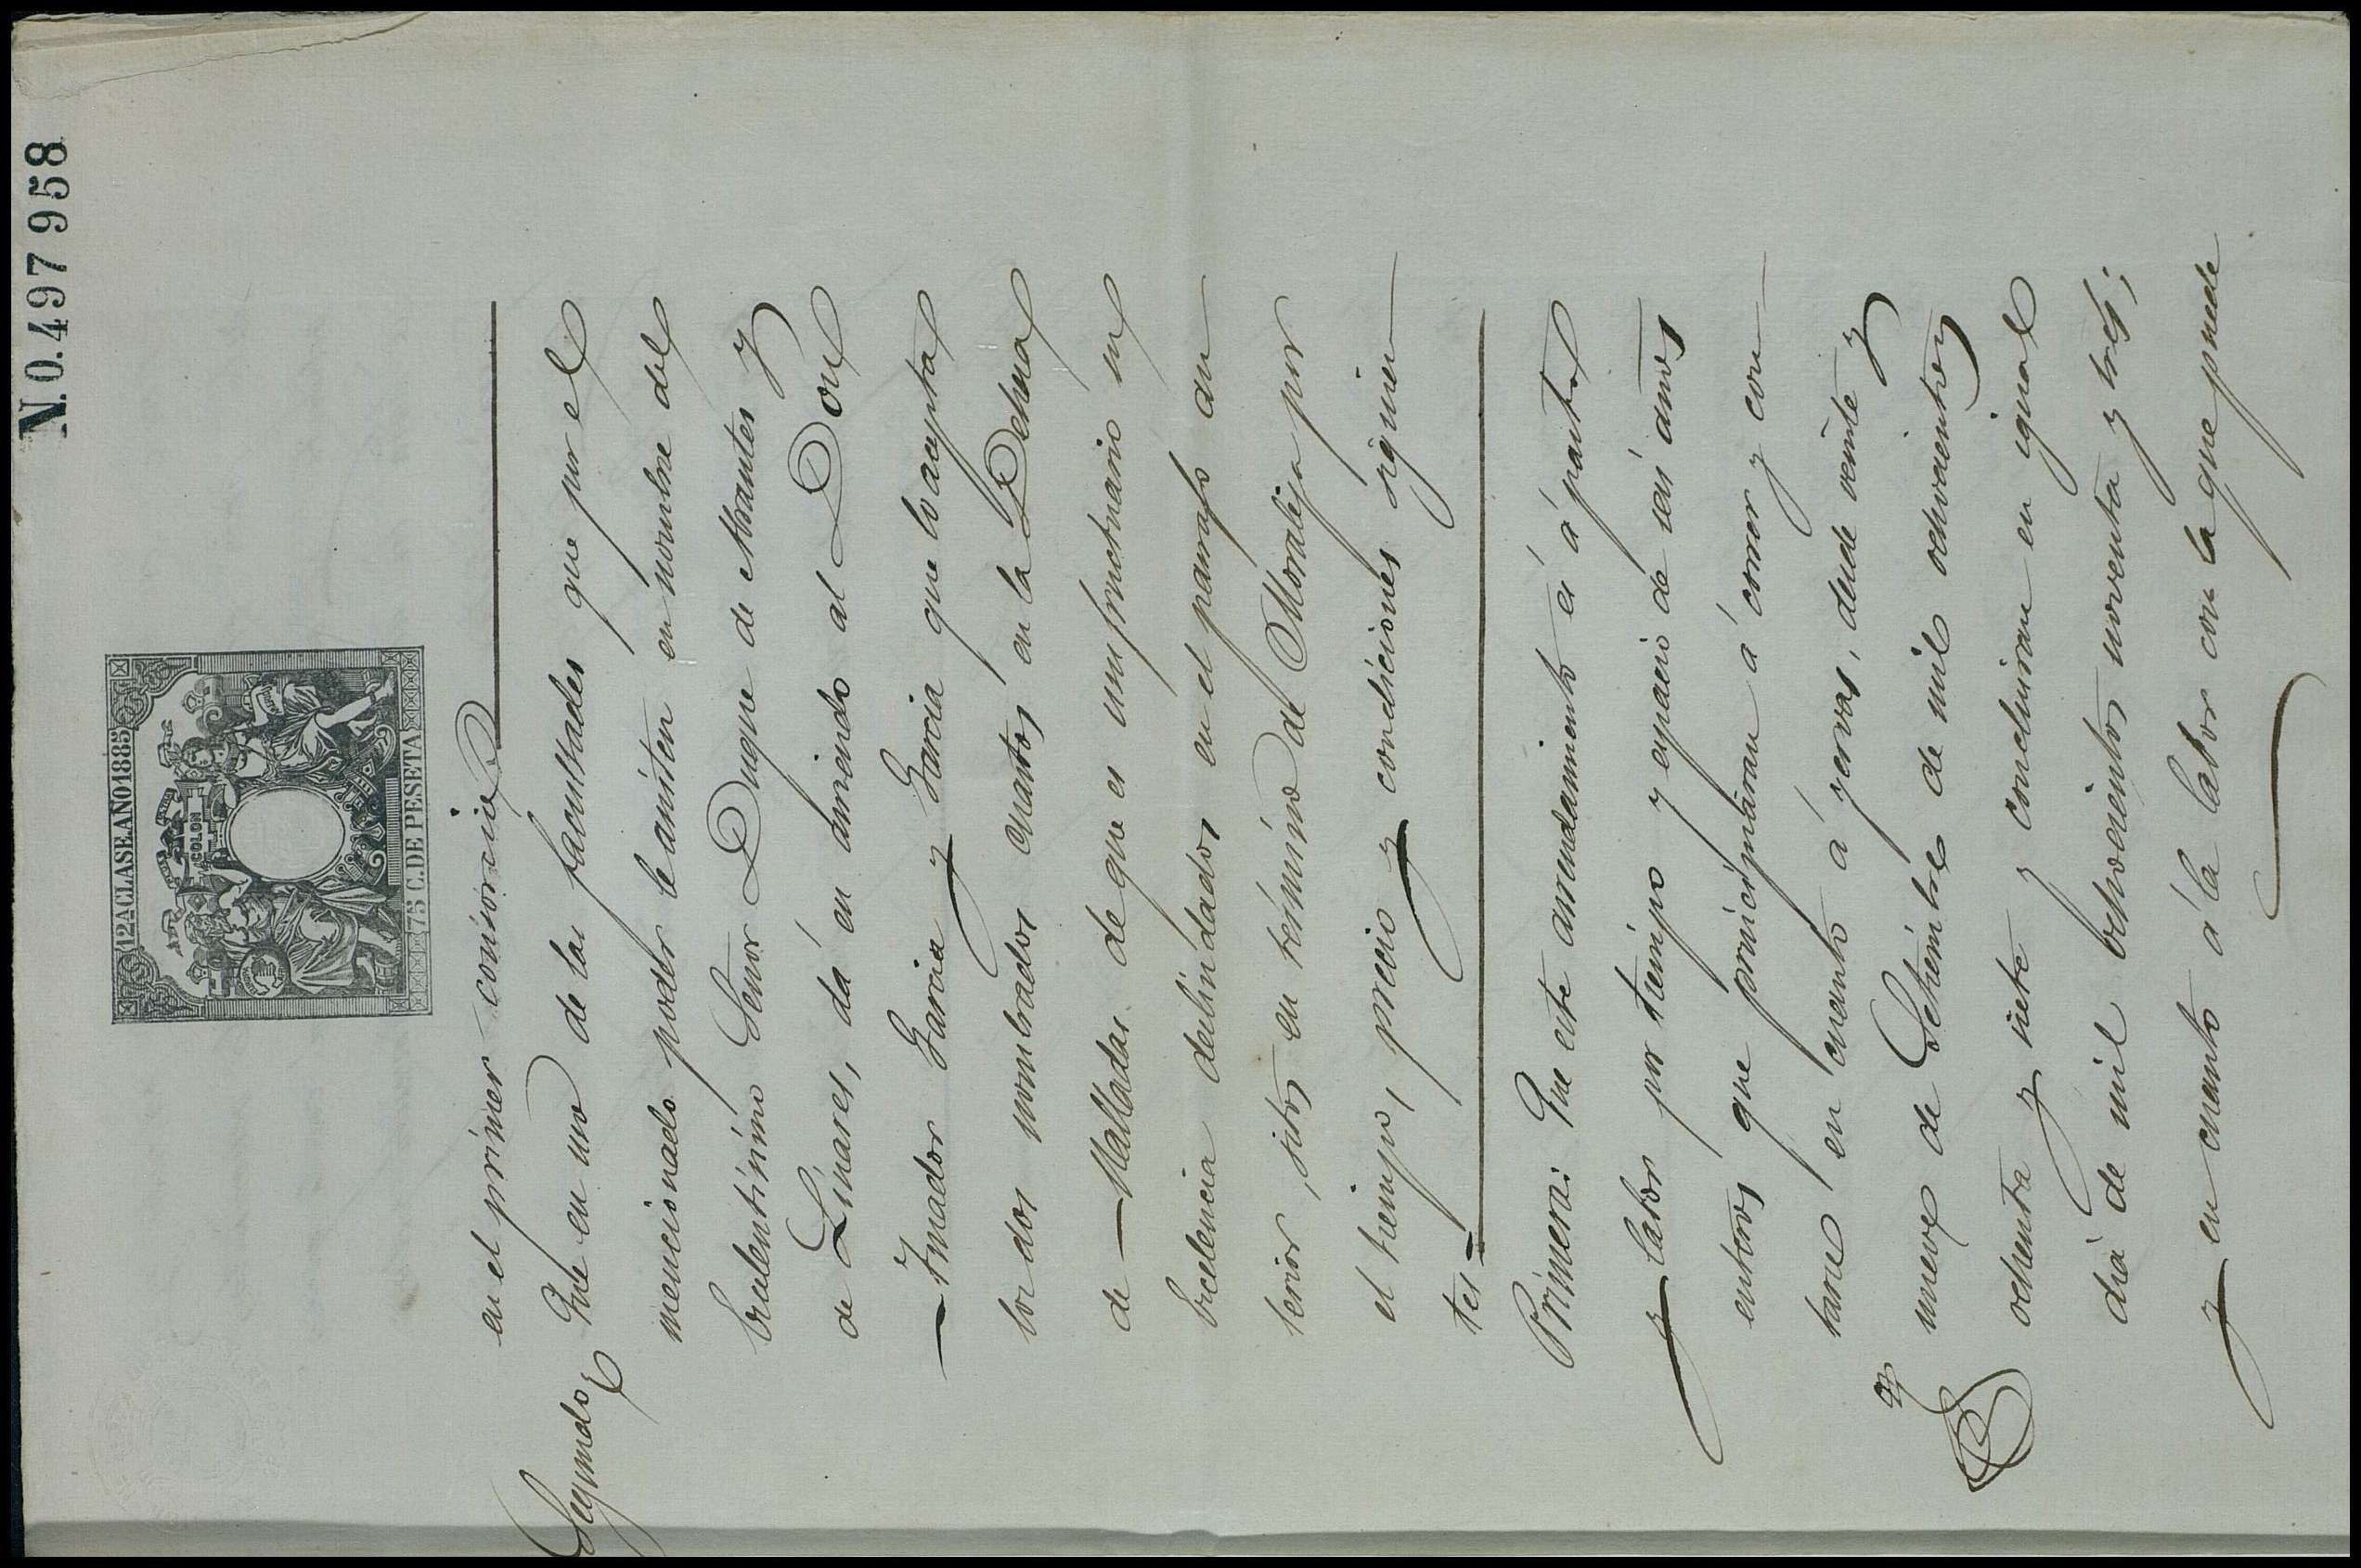 N.0.497958
12ª CLASE. AÑO 1885
COLON
75 C. DE PESETA
en el primer consorcio
Segundo, Que en uso de las facultades que por el
mencionado poder le asisten en nombre del
Excelentísimo Señor Duque de Abrantes y
de Linares, dá en arriendo al Don
Amador Garcia y Garcia que lo acepta
los dos nombrados cuartos en la Dehesa
de Malladas de que es usufructuario su
Excelencia deslindados en el parrafo an
terior, sitos en término de Moraleja por
el tiempo, precio y condiciones siguien
tes =
Primera: Que este arrendamiento es á pasto
y labor por tiempo y espacio de seis años
enteros que principiaran á correr y con
tarse en cuanto á yervas, desde veinte y
nueve de Setiembre de mil ochocientos
ochenta y siete y concluiran en igual
dia de mil ochocientos noventa y tres;
y en cuanto á la labor con la que puede